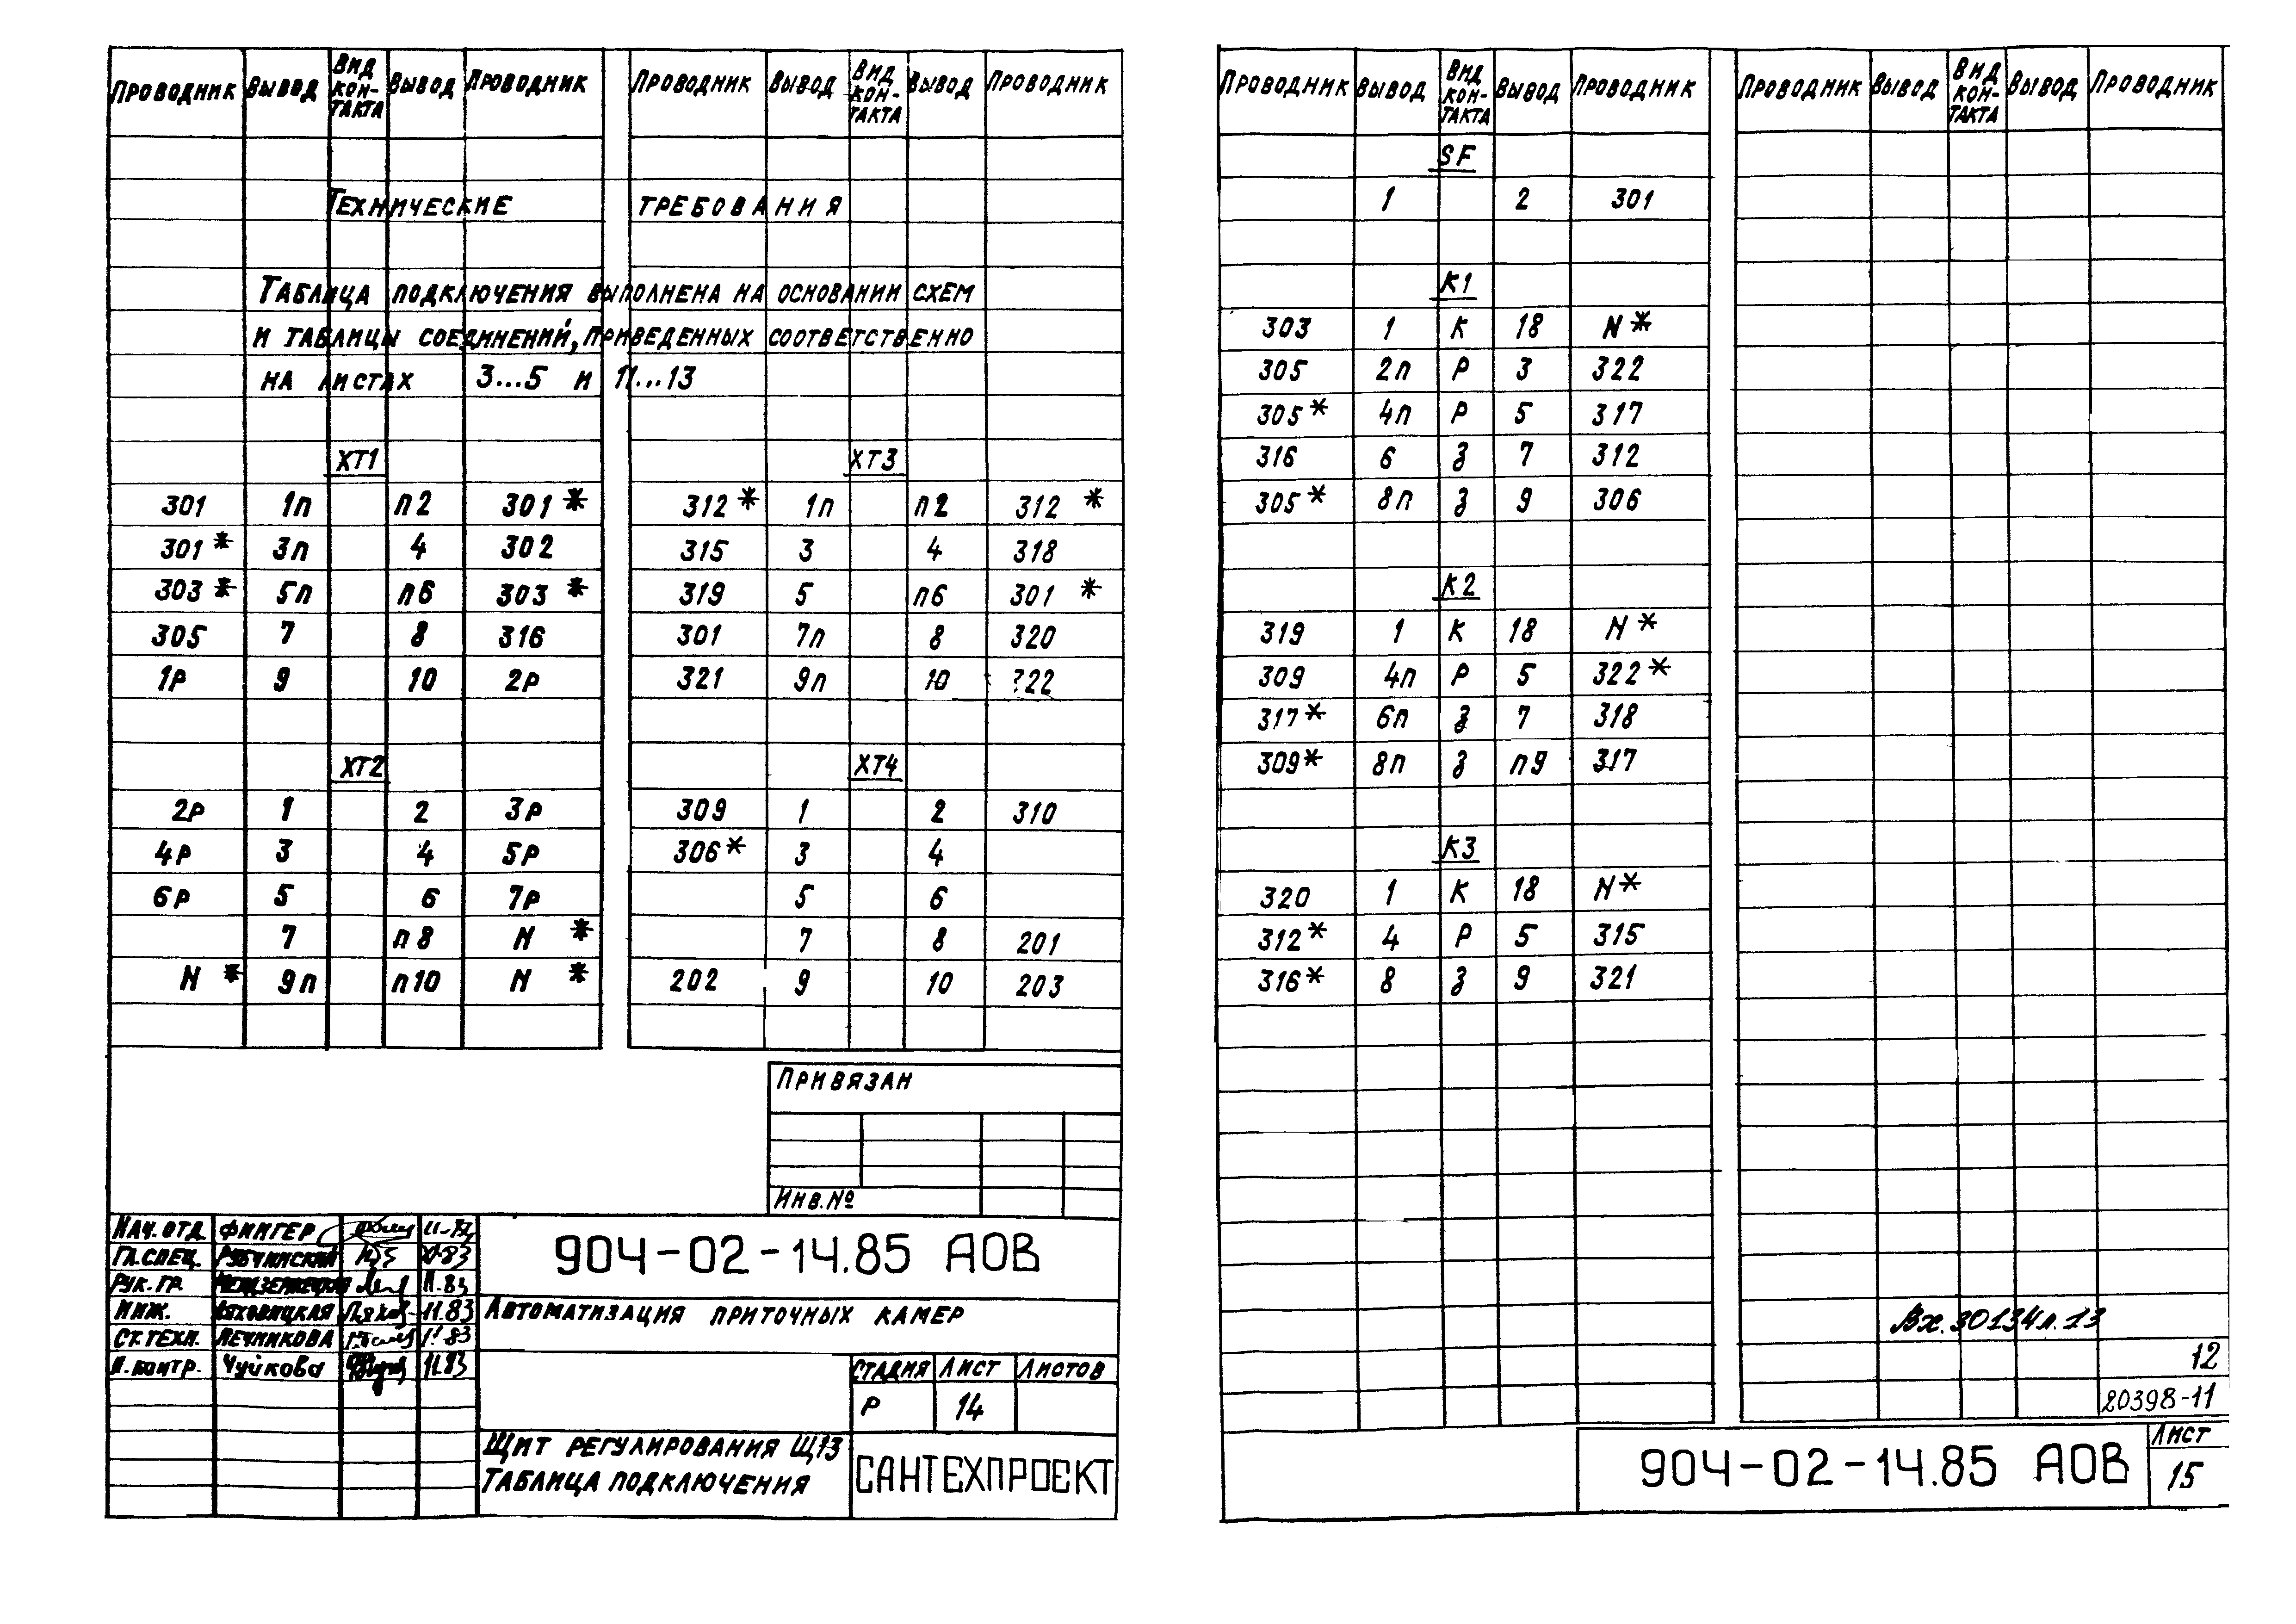 Проводник Вывод Вид кон-такта Вывод Проводник Проводник Вывод Вид кон-такта Вывод Проводник
Технические требования
Таблица подключения выполнена на основании схем
и таблицы соединений, приведенных соответственно
на листах 3...5 и 11...13
ХТ1 ХТ3
301 1п п2 301* 312* 1п п2 312*
301* 3п 4 302 315 3 4 318
303* 5п п6 303* 319 5 п6 301*
305 7 8 316 301 7п 8 320
1Р 9 10 2Р 321 9п 10 322
ХТ2 ХТ4
2Р 1 2 3Р 309 1 2 310
4Р 3 4 5Р 306* 3 4
6Р 5 6 7Р 5 6
7 п8 N* 7 8 201
N* 9п п10 N* 202 9 10 203
Привязан
Инв.№
Нач. отд. Фингер
Гл. спец. Рубчинский XI-83
Рук. гр. 11.83
Инж. Ляховицкая 11.83
Ст. техн. Печникова 11.83
Н. контр. Чуйкова 11.83
904-02-14.85 АОВ
Автоматизация приточных камер
Стадия Лист Листов
Р 14
Щит регулирования Щ13
Таблица подключения
САНТЕХПРОЕКТ
Проводник Вывод Вид кон-такта Вывод Проводник Проводник Вывод Вид кон-такта Вывод Проводник
SF
1 2 301
К1
303 1 К 18 N*
305 2п Р 3 322
305* 4п Р 5 317
316 6 З 7 312
305* 8п З 9 306
К2
319 1 К 18 N*
309 4п Р 5 322*
317* 6п З 7 318
309* 8п З п9 317
К3
320 1 К 18 N*
312* 4 Р 5 315
316* 8 З 9 321
Вх. 30134л.13
12
20398-11
904-02-14.85 АОВ
Лист
15